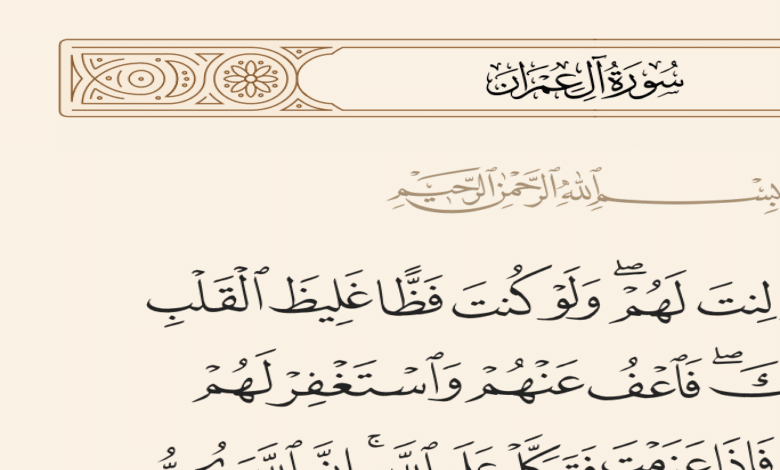 سُورَةُ آلِ عِمْرَان
بِسْمِ ٱللَّهِ ٱلرَّحْمَٰنِ ٱلرَّحِيمِ
لِنتَ لَهُمْ ۖ وَلَوْ كُنتَ فَظًّا غَلِيظَ ٱلْقَلْبِ
كَ ۖ فَٱعْفُ عَنْهُمْ وَٱسْتَغْفِرْ لَهُمْ
فَإِذَا عَزَمْتَ فَتَوَكَّلْ عَلَى ٱللَّهِ ۚ إِنَّ ٱللَّهَ